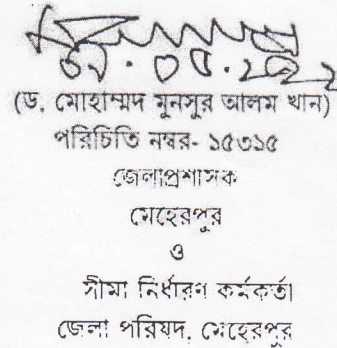 (ড. মোহাম্মদ মুনসুর আলম খান)
পরিচিতি নম্বর- ১৫৩১৫
জেলাপ্রশাসক
মেহেরপুর
ও
সীমা নির্ধারণ কর্মকর্তা
জেলা পরিষদ, মেহেরপুর